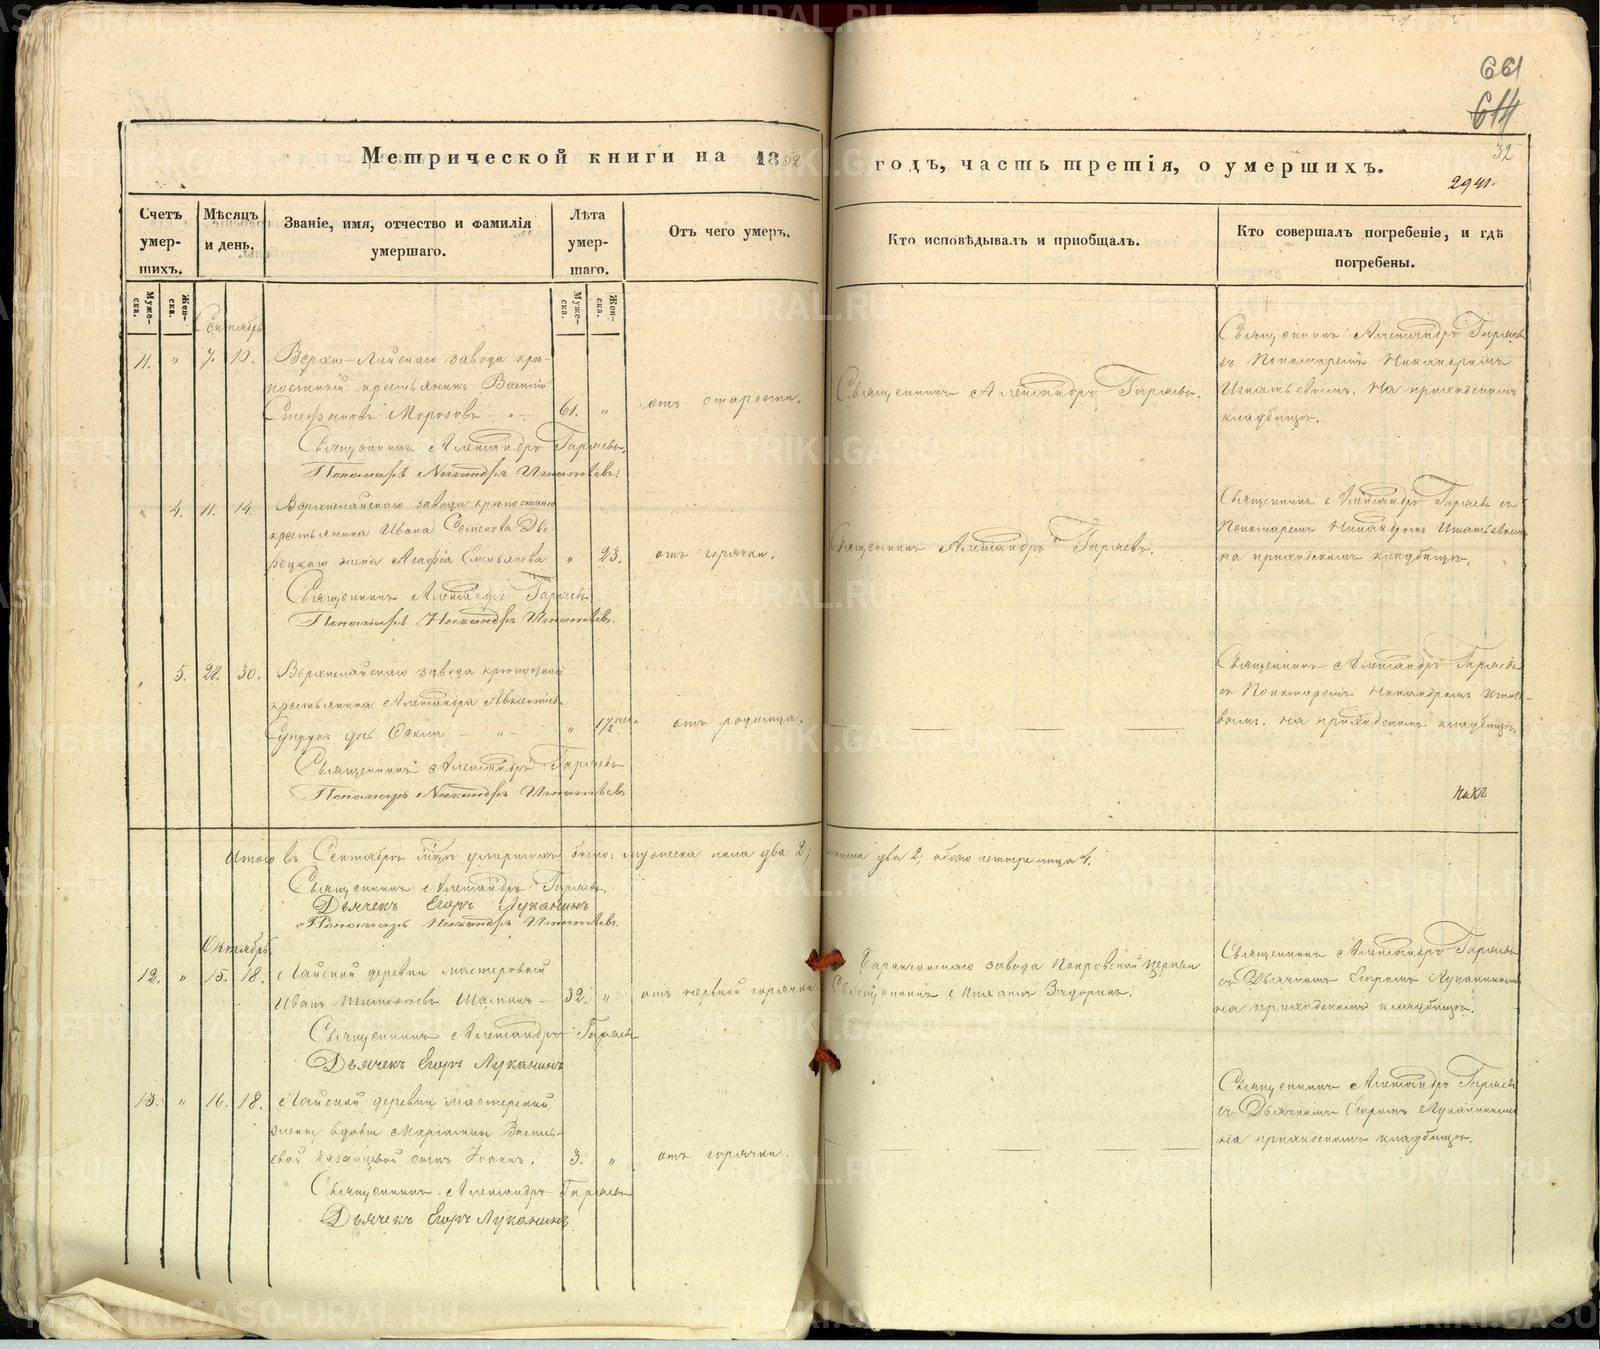 661
614
32
2941.
Метрической книги на 1852 годъ, часть третія, о умершихъ.
Счетъ умер-шихъ.
Мѣсяцъ и день.
Званіе, имя, отчество и фамилія умершаго.
Лѣта умер-шаго.
Отъ чего умеръ.
Кто исповѣдывалъ и приобщалъ.
Кто совершалъ погребеніе, и гдѣ погребены.
Муже-ска.
Жен-ска.
Муже-ска.
Жен-ска.
Сентябрь
11. " 7. 10.
Верхне-Лайскаго завода крѣ-
постный крестьянинъ Василій
Стефановъ Морозовъ — " — 61. "
отъ старости.
Священникъ Александръ Гаряевъ.
Священникъ Александръ Гаряевъ
съ Пономаремъ Никандромъ
Игнатьевымъ. На приходскомъ
кладбищѣ.
Священникъ Александръ Гаряевъ.
Пономарь Никандръ Игнатьевъ.
" 4. 11. 14.
Верхнелайскаго завода крѣпостнаго
крестьянина Ивана Семенова Дво-
рецкаго жена Агафія Емельянова " 23.
отъ горячки.
Священникъ Александръ Гаряевъ.
Священникъ Александръ Гаряевъ съ
Пономаремъ Никандромъ Игнатьевымъ
на приходскомъ кладбищѣ.
Священникъ Александръ Гаряевъ
Пономарь Никандръ Игнатьевъ.
" 5. 28. 30.
Верхнелайскаго завода крѣпостнаго
крестьянина Александра
дочь — " — "
отъ родимца.
Священникъ Александръ Гаряевъ
съ Пономаремъ Никандромъ Игнать-
евымъ. на приходскомъ кладбищѣ
Священникъ Александръ Гаряевъ
Пономарь Никандръ Игнатьевъ
Итого въ Сентябрѣ мѣсяцѣ умершихъ было: мужеска пола два 2, женска два 2; обоего четыре лица 4.
Священникъ Александръ Гаряевъ.
Дьячекъ Егоръ Луканинъ
Пономарь Никандръ Игнатьевъ.
Октябрь
12. " 15. 18.
Лайской деревни мастеровый
Иванъ Тимофеевъ — 32. "
отъ нервной горячки.
Баранчинскаго завода Покровской церкви
Священникъ Михаилъ Задоринъ.
Священникъ Александръ Гаряевъ
съ Дьячкомъ Егоромъ Луканинымъ
на приходскомъ кладбищѣ.
Священникъ Александръ Гаряевъ
Дьячекъ Егоръ Луканинъ
13. " 16. 18.
Лайской деревни мастерской
жены вдовы Маріамны Василь-
евой Казанцевой сынъ Іоаннъ. 3. "
отъ горячки.
Священникъ Александръ Гаряевъ
съ Дьячкомъ Егоромъ Луканинымъ
на приходскомъ кладбищѣ.
Священникъ Александръ Гаряевъ
Дьячекъ Егоръ Луканинъ
METRIKI.GASO-URAL.RU